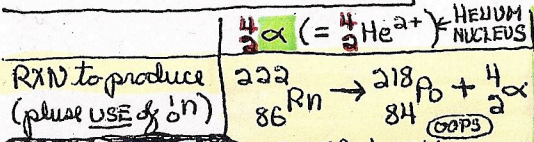 ⁴₂α (= ⁴₂He²⁺) ← HELIUM NUCLEUS
RXN to produce
(pluse USE of ¹₀n)
²²²₈₆Rn → ²¹⁸₈₄Po + ⁴₂α
(OOPS)